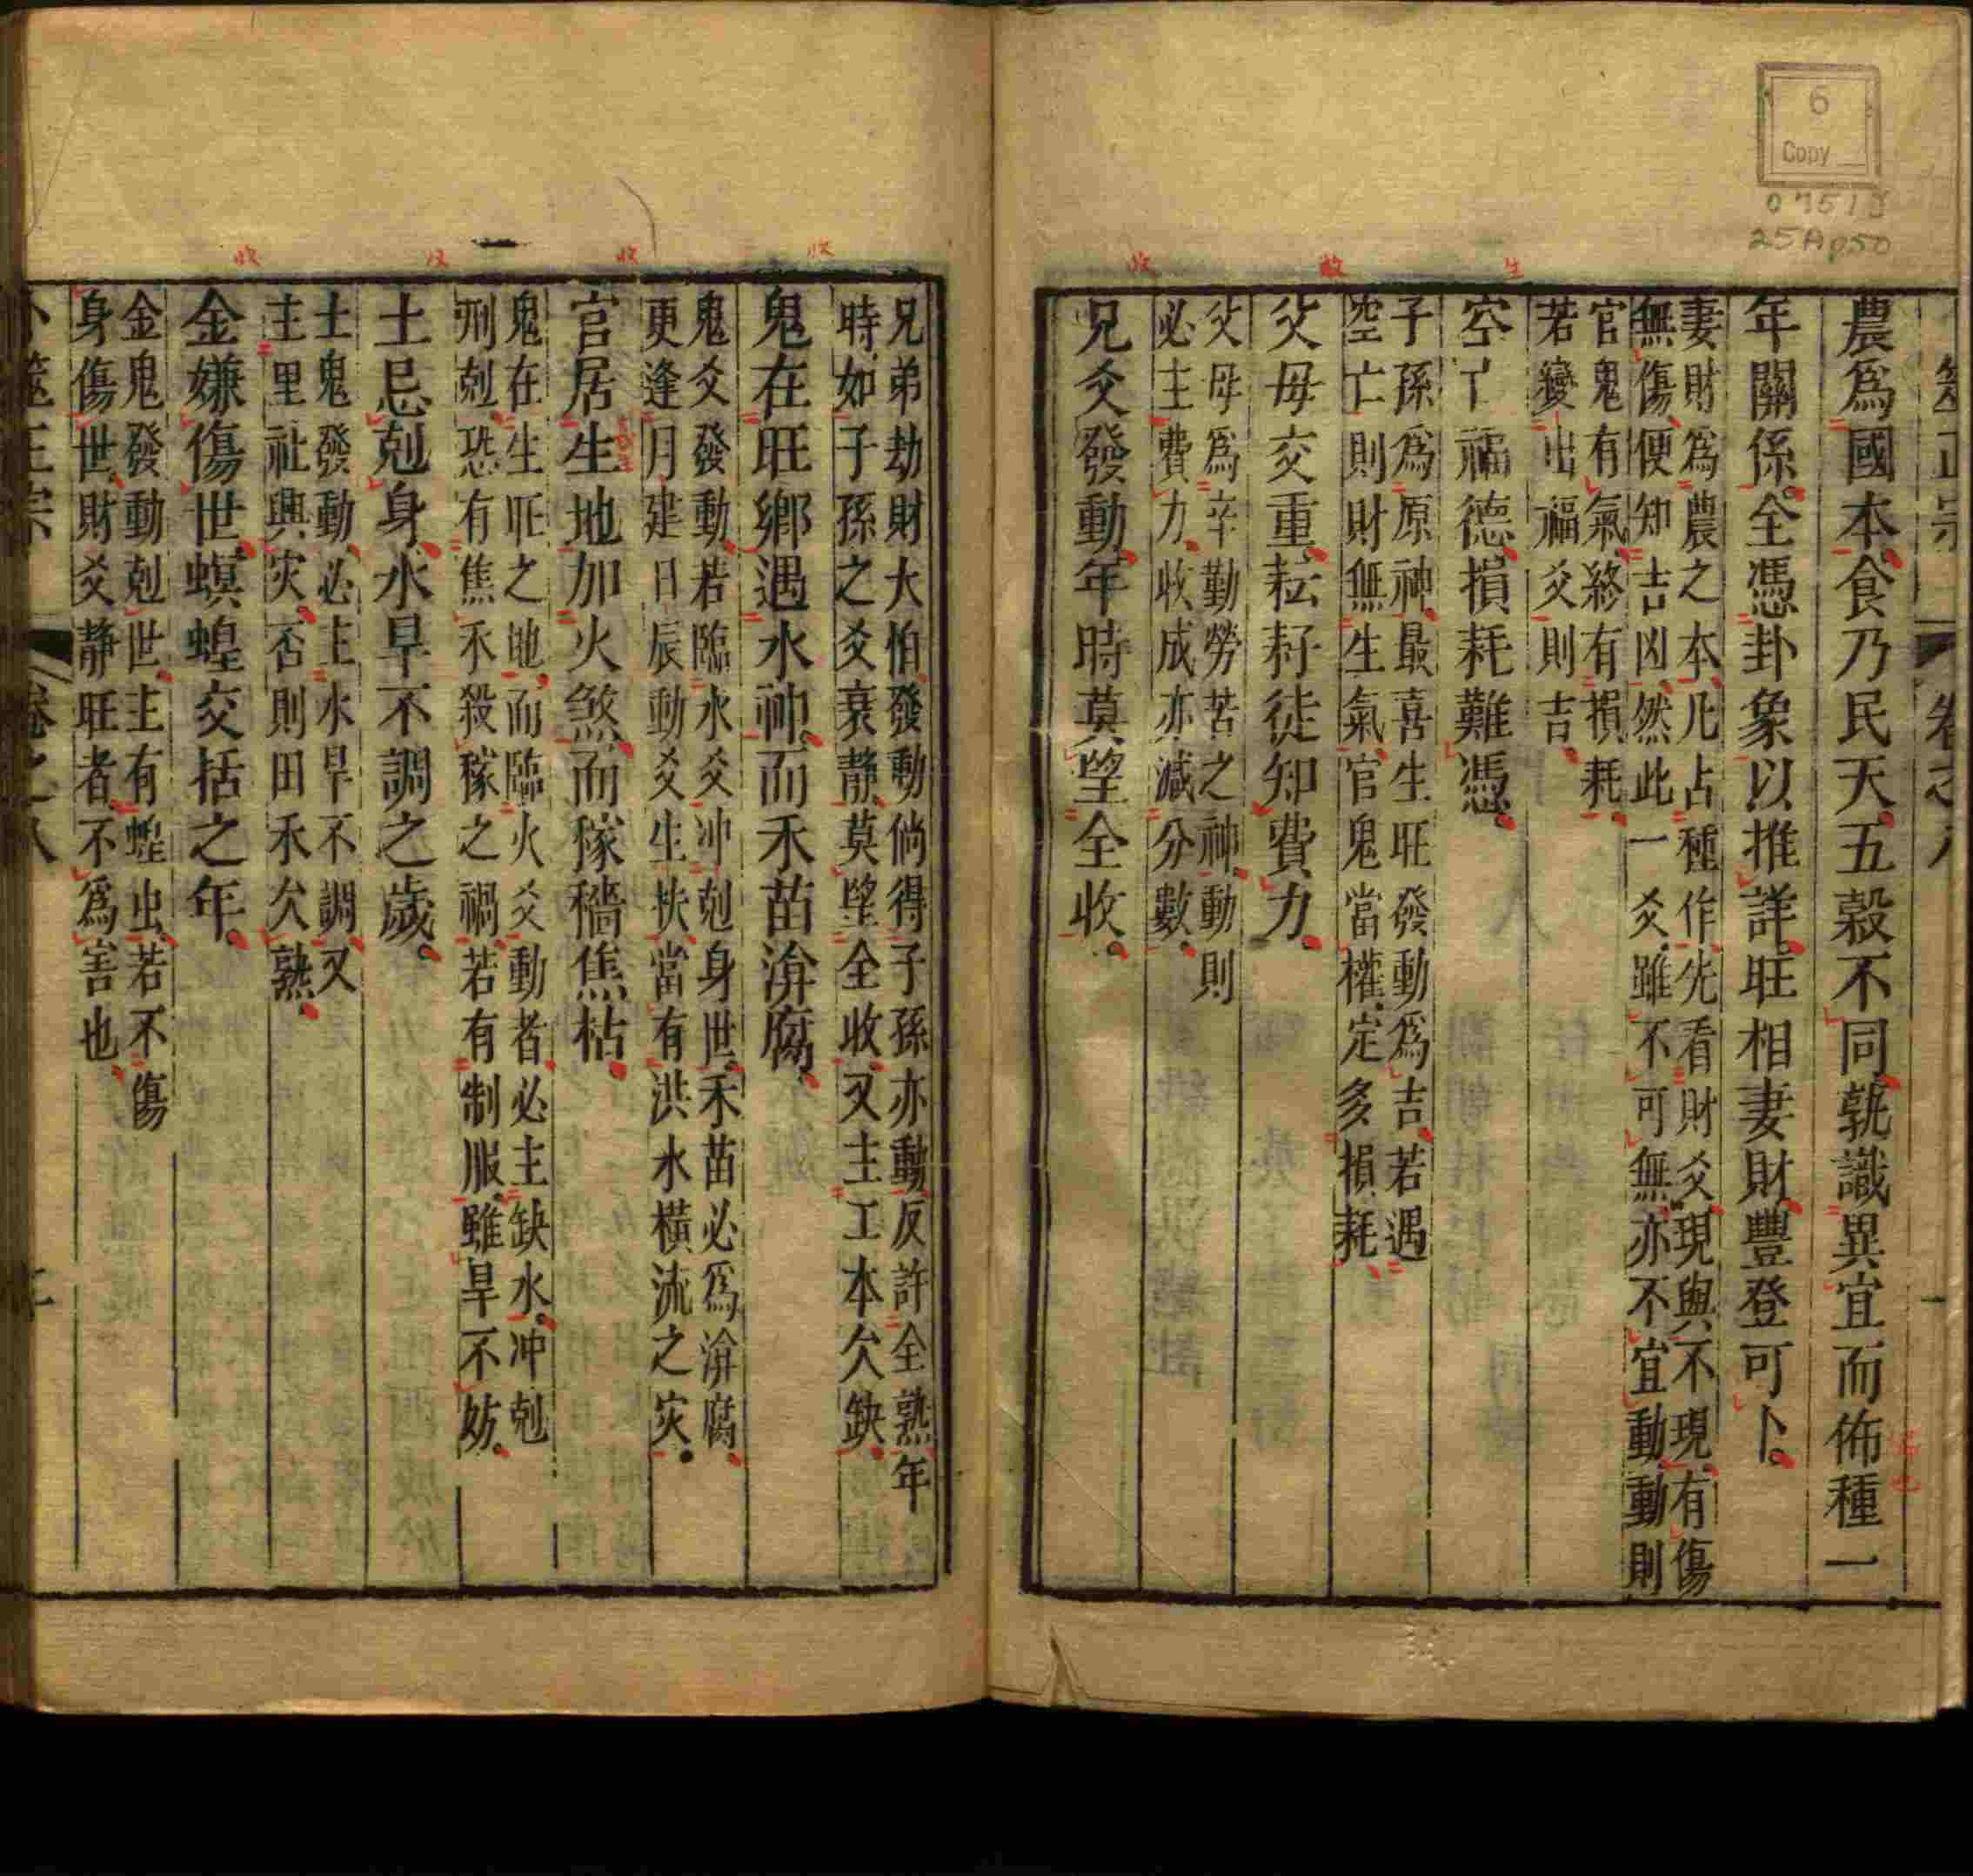 農爲國本食乃民天五穀不同孰識異宜而佈種一
年關係全憑卦象以推詳旺相妻財豐登可卜
妻財爲農之本凡占種作先看財爻現與不現有傷
無傷便知吉凶然此一爻雖不可無亦不宜動動則
官鬼有氣終有損耗
若變出福爻則吉
空亡福德損耗難憑
子孫爲原神最喜生旺發動爲吉若遇
空亡則財無生氣官鬼當權定多損耗
父母交重耘耔徒知費力
父母爲辛勤勞苦之神動則
必主費力收成亦減分數
兄爻發動年時莫望全收
兄弟劫財大怕發動倘得子孫亦動反許全熟年
時如子孫之爻衰靜莫望全收又主工本欠缺
鬼在旺鄉遇水神而禾苗渰腐
鬼爻發動若臨水爻冲剋身世禾苗必爲渰腐
更逢月建日辰動爻生扶當有洪水橫流之灾
官居生地加火煞而稼穡焦枯
鬼在生旺之地而臨火爻動者必主缺水冲剋
刑剋恐有焦禾殺稼之禍若有制服雖旱不妨
土忌剋身水旱不調之歲
土鬼發動必主水旱不調又
主里社興灾否則田禾欠熟
金嫌傷世螟蝗交括之年
金鬼發動剋世主有蝗出若不傷
身傷世財爻靜旺者不爲害也
卜筮正宗 卷之八
6
Copy
25Ap50